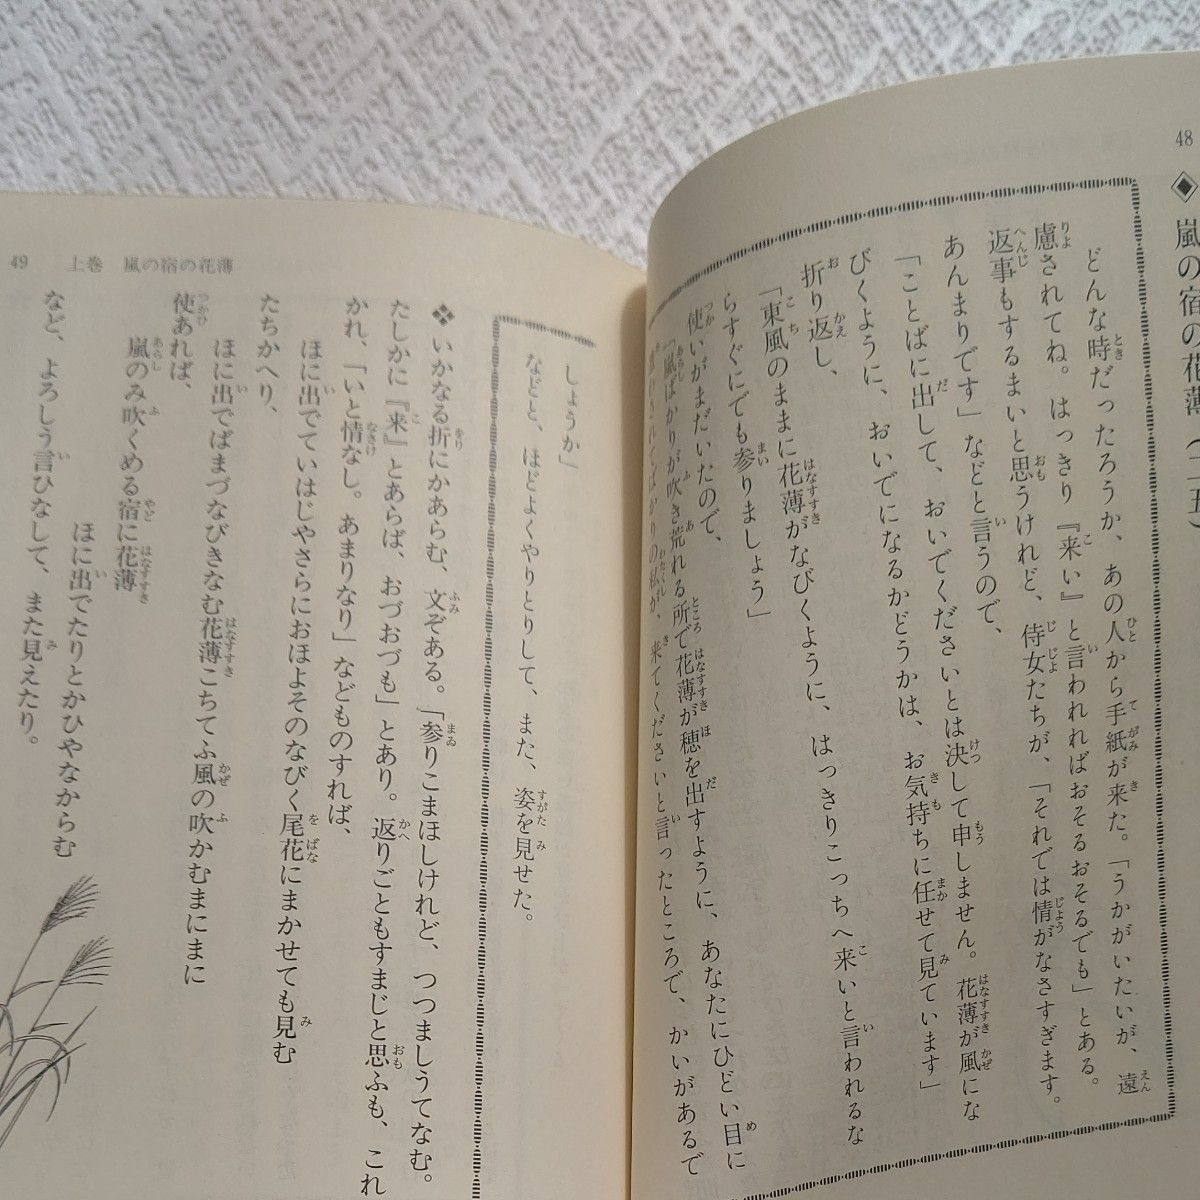 48
嵐の宿の花薄(二五)
どんな時だったろうか、あの人から手紙が来た。「うかがいたいが、遠
慮されてね。はっきり『来い』と言われればおそるおそるでも」とある。
返事もするまいと思うけれど、侍女たちが、「それでは情がなさすぎます。
あんまりです」などと言うので、
「ことばに出して、おいでくださいとは決して申しません。花薄が風にな
びくように、おいでになるかどうかは、お気持ちに任せて見ています」
折り返し、
「東風のままに花薄がなびくように、はっきりこっちへ来いと言われるな
らすぐにでも参りましょう」
使いがまだいたので、
「嵐ばかりが吹き荒れる所で花薄が穂を出すように、あなたにひどい目に
りの私が、来てくださいと言ったところで、かいがあるで
しょうか」
などと、ほどよくやりとりして、また、姿を見せた。
❖いかなる折にかあらむ、文ぞある。「参りこまほしけれど、つつましうてなむ。
たしかに『来』とあらば、おづおづも」とあり。返りごともすまじと思ふも、これ
かれ、「いと情なし。あまりなり」などものすれば、
ほに出でていはじやさらにおほよそのなびく尾花にまかせても見む
たちかへり、
ほに出でばまづなびきなむ花薄こちてふ風の吹かむまにまに
使あれば、
嵐のみ吹くめる宿に花薄
ほに出でたりとかひやなからむ
など、よろしう言ひなして、また見えたり。
49 上巻 嵐の宿の花薄